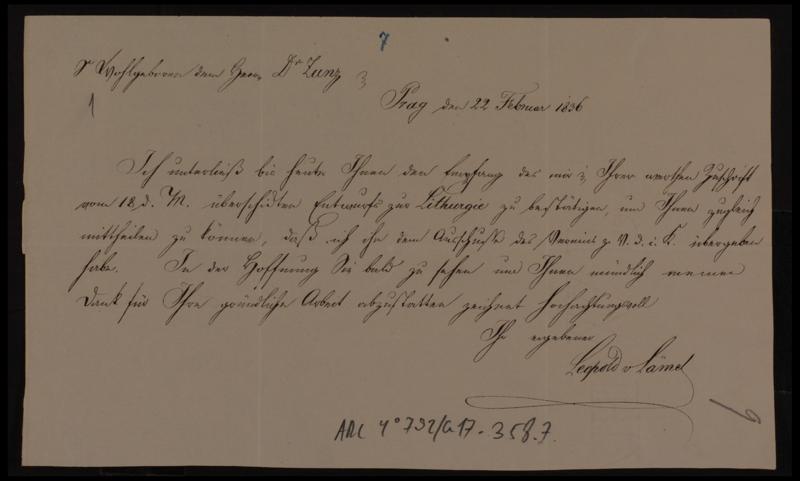 7
Sr Wohlgeboren dem Herrn Dr Zunz
1
Prag den 22 Februar 1836
Ich unterließ bis heute Ihnen den Empfang des mir in Ihrer werthen Zuschrift
vom 18. d. M. überschickten Entwurfs zur Lithurgie zu bestätigen, um Ihnen zugleich
mittheilen zu können, daß ich ihn dem Ausschusse des Vereins z. V. d. i. K. übergeben
habe. In der Hoffnung Sie bald zu sehen und Ihnen mündlich meinen
Dank für Ihre gründliche Arbeit abzustatten zeichnet hochachtungsvoll
Ihr ergebener
Leopold v Lämel
9
ARC 4° 792/G17-358.7.